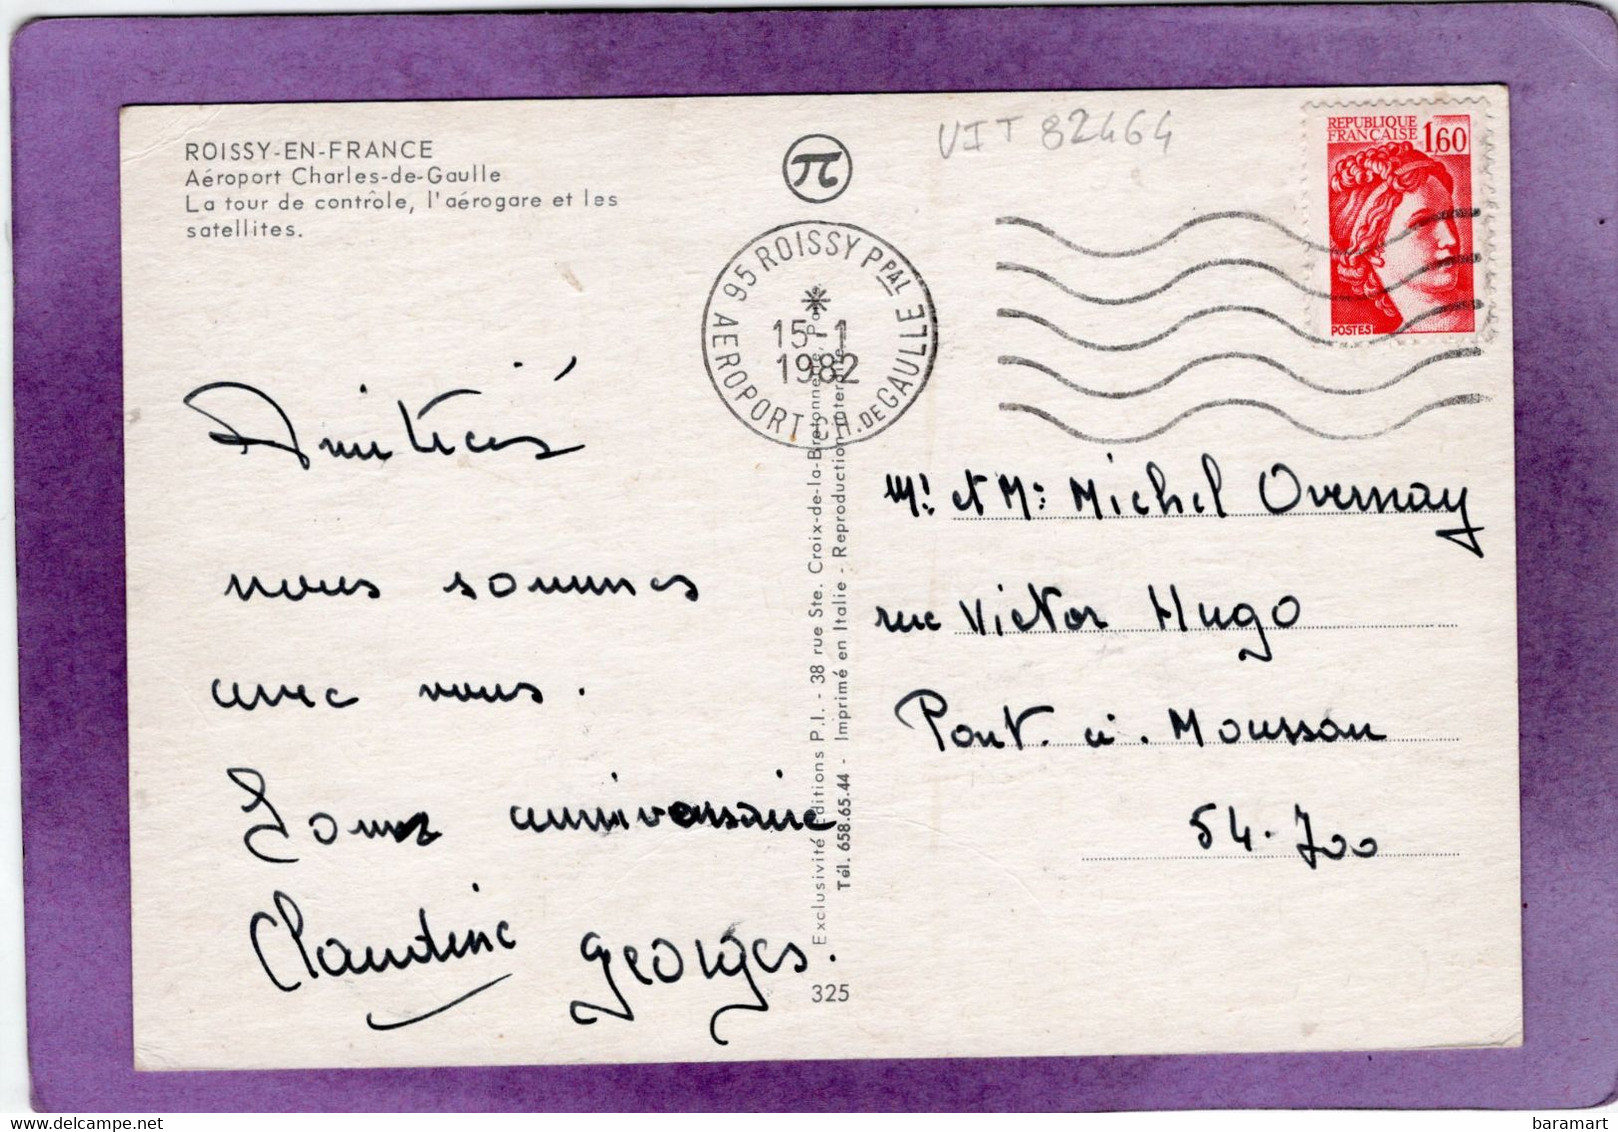 ROISSY-EN-FRANCE
Aéroport Charles-de-Gaulle
La tour de contrôle, l'aérogare et les
satellites.
π
VIT 82464
REPUBLIQUE
FRANÇAISE 1,60
POSTES
95 ROISSY PPAL
AEROPORT CH. DE GAULLE
15-1
1982
Amitiés
nous sommes
avec vous.
anniversaire
Claudine Georges.
Exclusivité Editions P.I. - 38 rue Ste. Croix-de-la-Bretonnerie, Paris
Tél. 658.65.44 - Imprimé en Italie - Reproduction interdite
325
Mr et Me Michel Overnay
rue Victor Hugo
Pont. à. Mousson
54.700
baramart